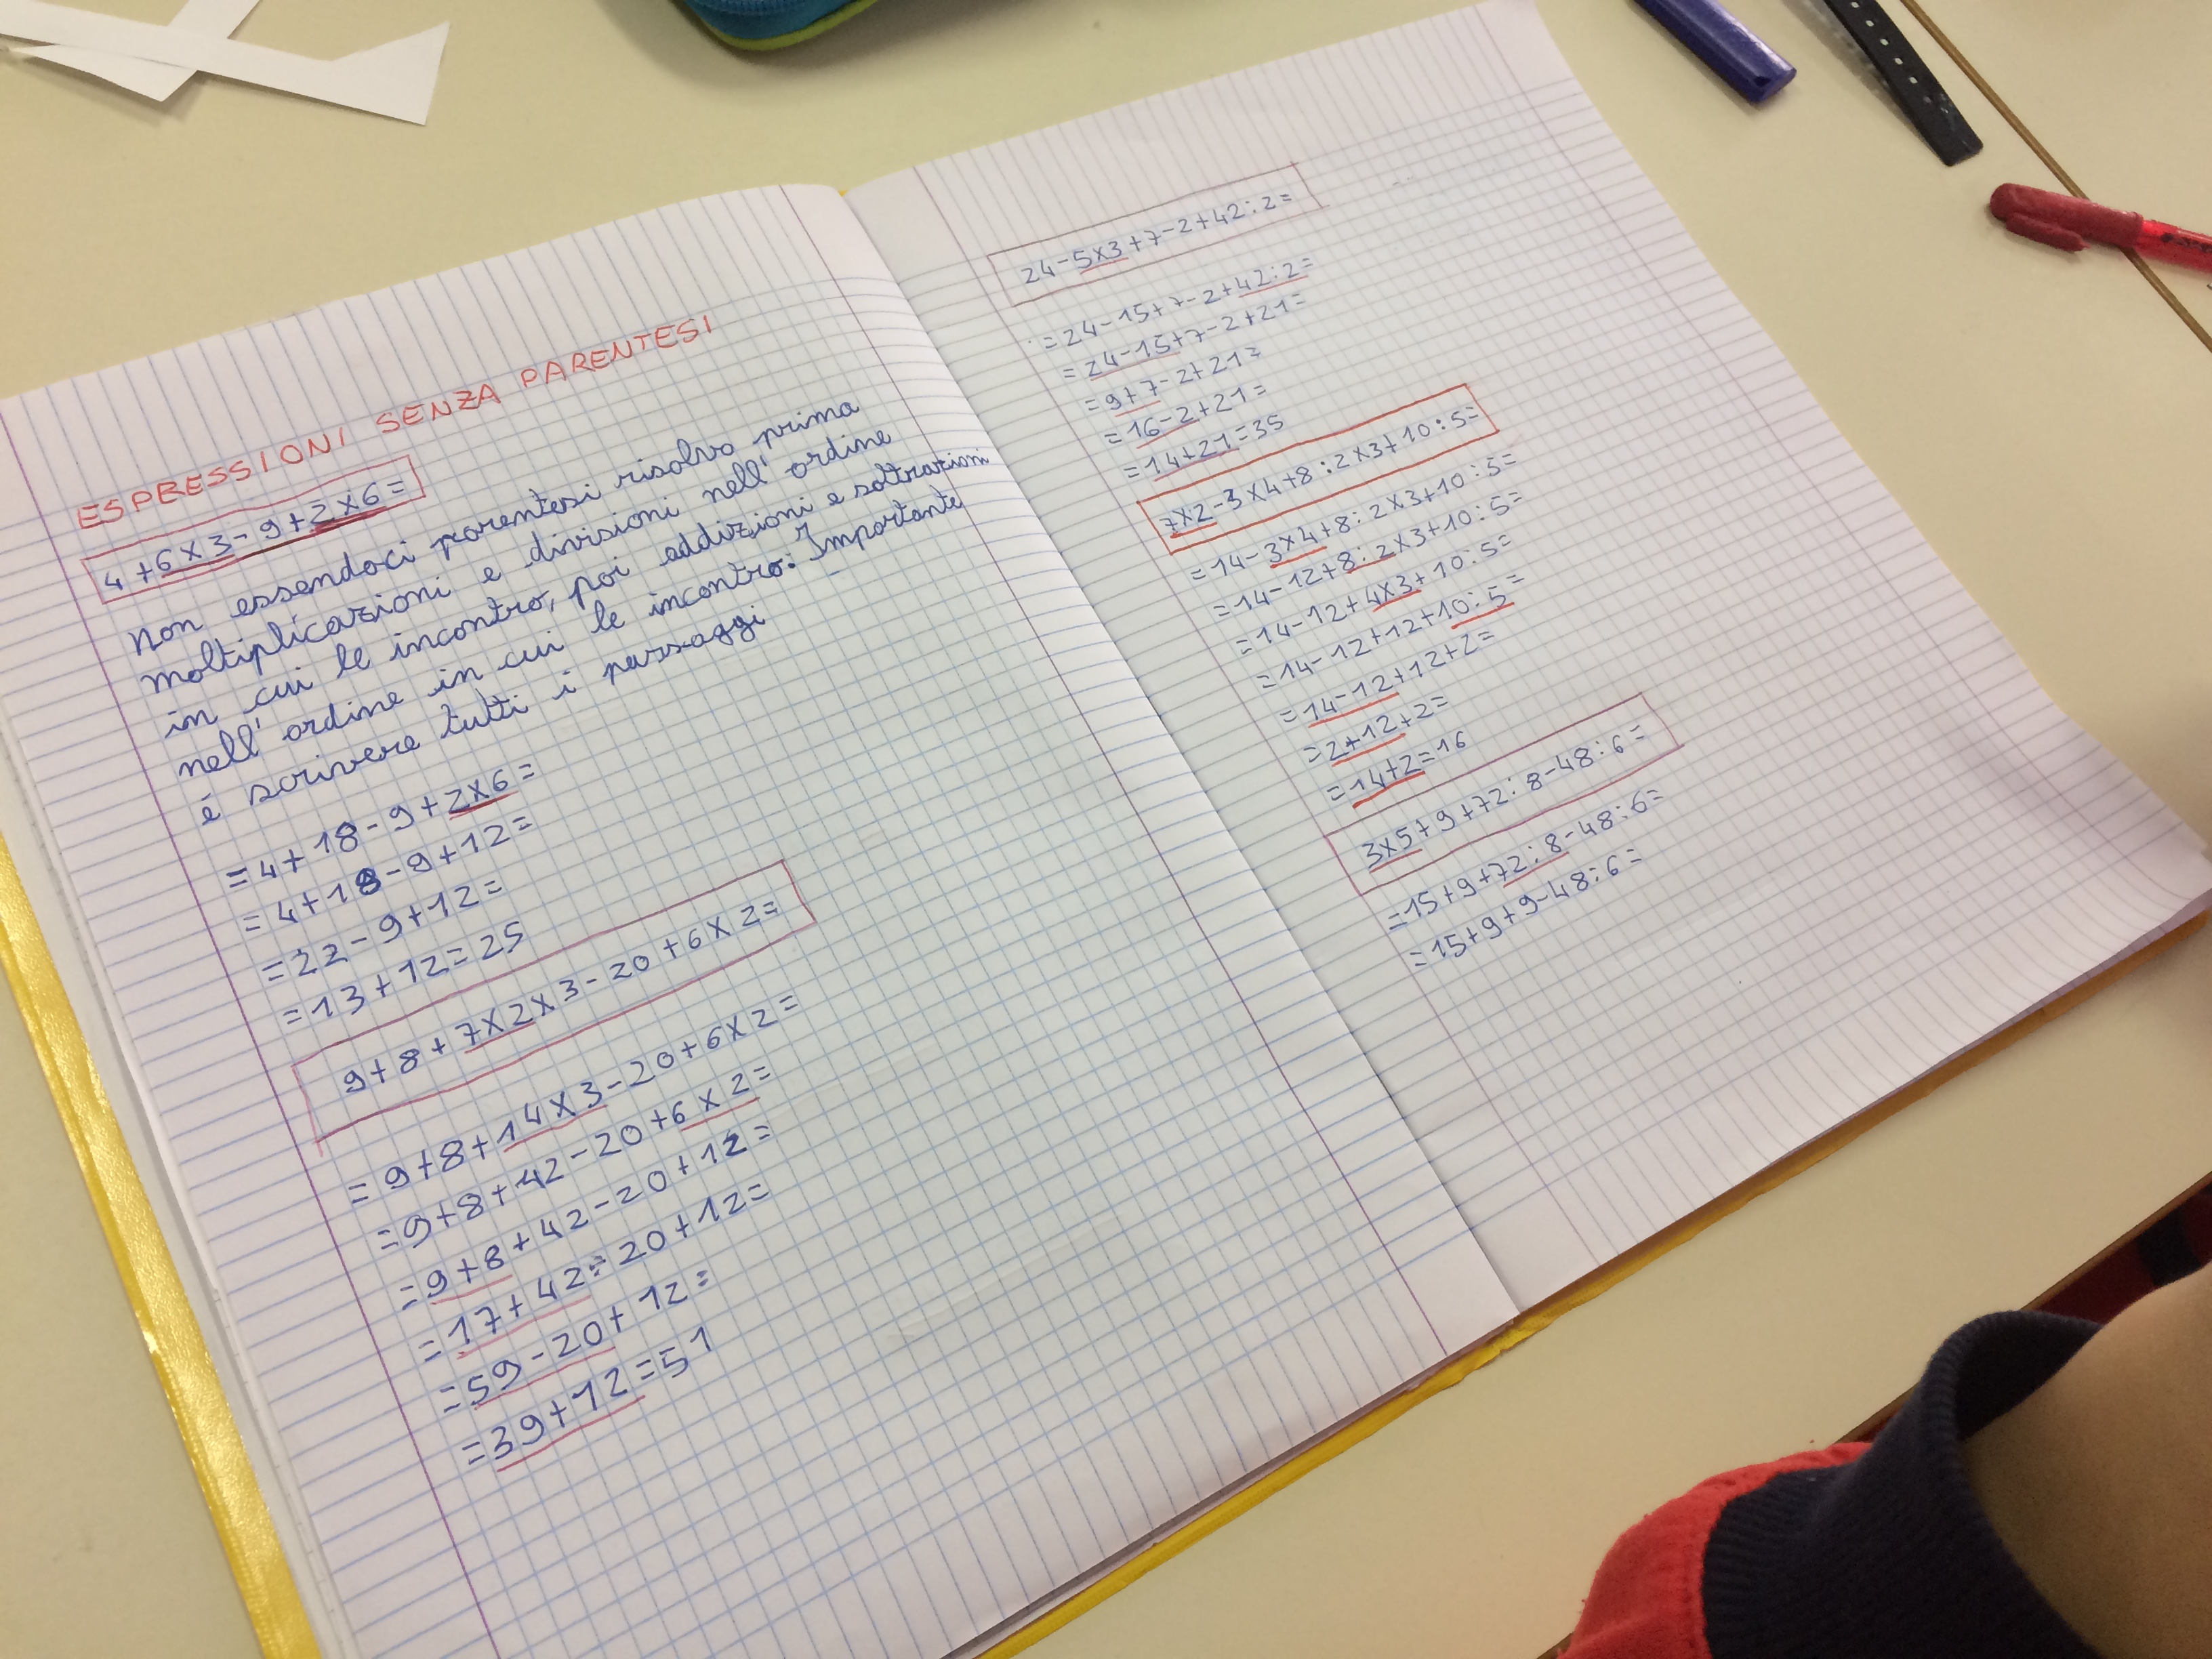 ESPRESSIONI SENZA PARENTESI
4+6×3-9+2×6=
Non essendoci parentesi risolvo prima
moltiplicazioni e divisioni nell'ordine
in cui le incontro, poi addizioni e sottrazioni
nell'ordine in cui le incontro: Importante
é scrivere tutti i passaggi
=4+18-9+2×6=
=4+18-9+12=
=22-9+12=
=13+12=25
9+8+7×2×3-20+6×2=
=9+8+14×3-20+6×2=
=9+8+42-20+6×2=
=9+8+42-20+12=
=17+42-20+12=
=59-20+12=
=39+12=51
24-5×3+7-2+42:2=
=24-15+7-2+42:2=
=24-15+7-2+21=
=9+7-2+21=
=16-2+21=
=14+21=35
7×2-3×4+8:2×3+10:5=
=14-3×4+8:2×3+10:5=
=14-12+8:2×3+10:5=
=14-12+4×3+10:5=
=14-12+12+10:5=
=14-12+12+2=
=2+12+2=
=14+2=16
3×5+9+72:8-48:6=
=15+9+72:8-48:6=
=15+9+9-48:6=